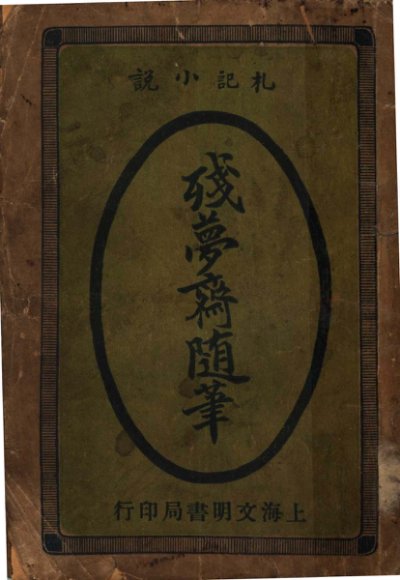 札記小説
殘夢齋随筆
上海文明書局印行